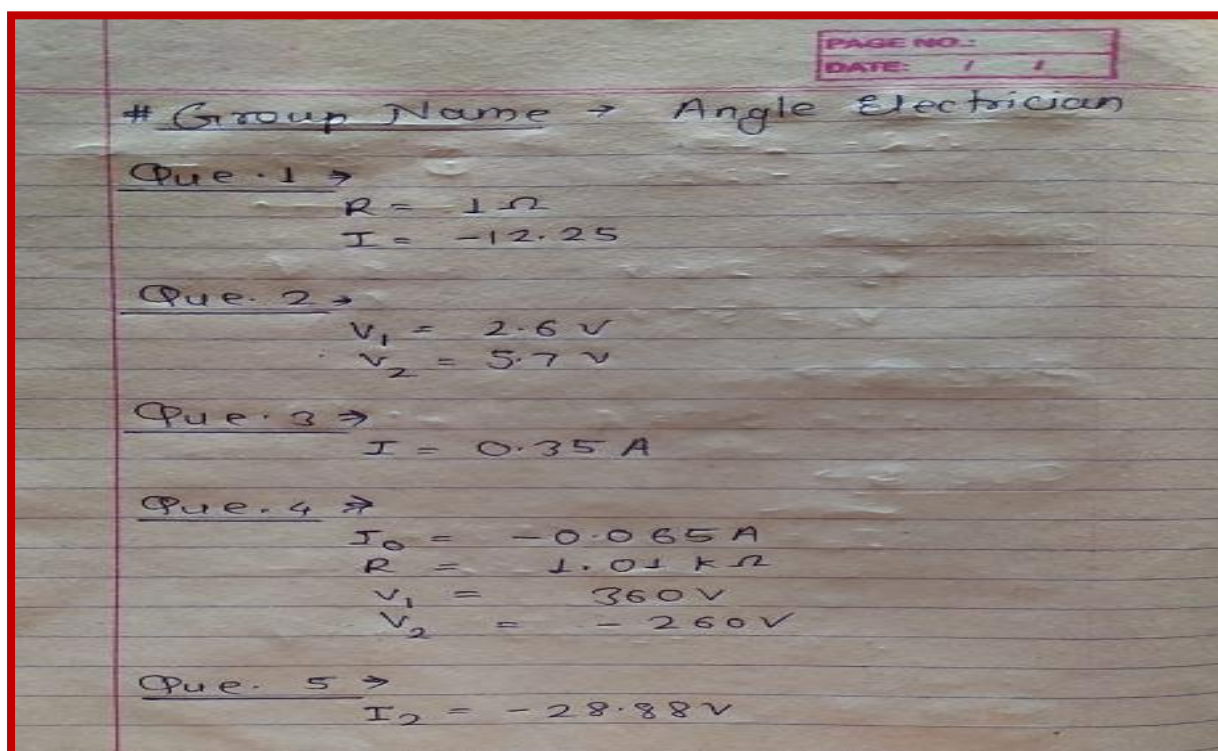 PAGE NO.:
DATE: / /
# Group Name → Angle Electrician
Que.1 →
R = 1Ω
I = -12.25
Que. 2 →
V₁ = 2.6 V
V₂ = 5.7 V
Que. 3 →
I = 0.35 A
Que. 4 →
I₀ = -0.065 A
R = 1.01 KΩ
V₁ = 360 V
V₂ = - 260 V
Que. 5 →
I₂ = -28.88 V